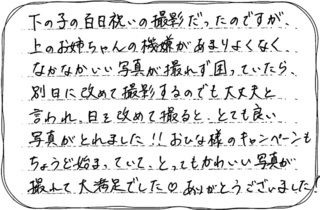 下の子の百日祝いの撮影だったのですが、
上のお姉ちゃんの機嫌があまりよくなく
なかなかいい写真が撮れず困っていたら、
別日に改めて撮影するのでも大丈夫と
言われ、日を改めて撮ると、とても良い
写真がとれました!!おひな様のキャンペーンも
ちょうど始まっていて、とってもかわいい写真が
撮れて大満足でした♡ありがとうございました!